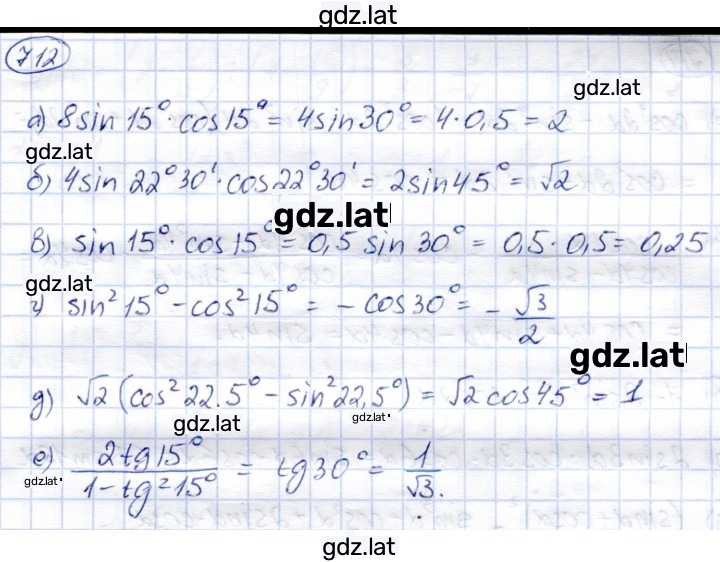 gdz.lat
712
gdz.lat
а) 8sin 15° · cos15° = 4sin30° = 4 · 0,5 = 2
gdz.lat
б) 4sin 22°30' · cos22°30' = 2sin45° = √2
gdz.lat
в) sin 15° · cos 15° = 0,5 sin 30° = 0,5 · 0,5 = 0,25
gdz.lat
г) sin²15° - cos²15° = - cos30° = - √3/2
gdz.lat
д) √2 (cos²22.5° - sin²22,5°) = √2 cos45° = 1
gdz.lat
gdz.lat
е) 2tg15°/1-tg²15° = tg30° = 1/√3.
gdz.lat
gdz.lat